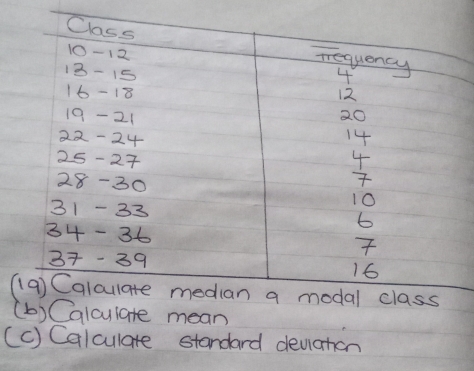 Class Frequency
10-12 4
13-15 12
16-18 20
19-21 14
22-24 4
25-27 7
28-30 10
31-33 6
34-36 7
37-39 16
(1a) Calculate median a modal class
(b) Calculate mean
(c) Calculate standard deviation